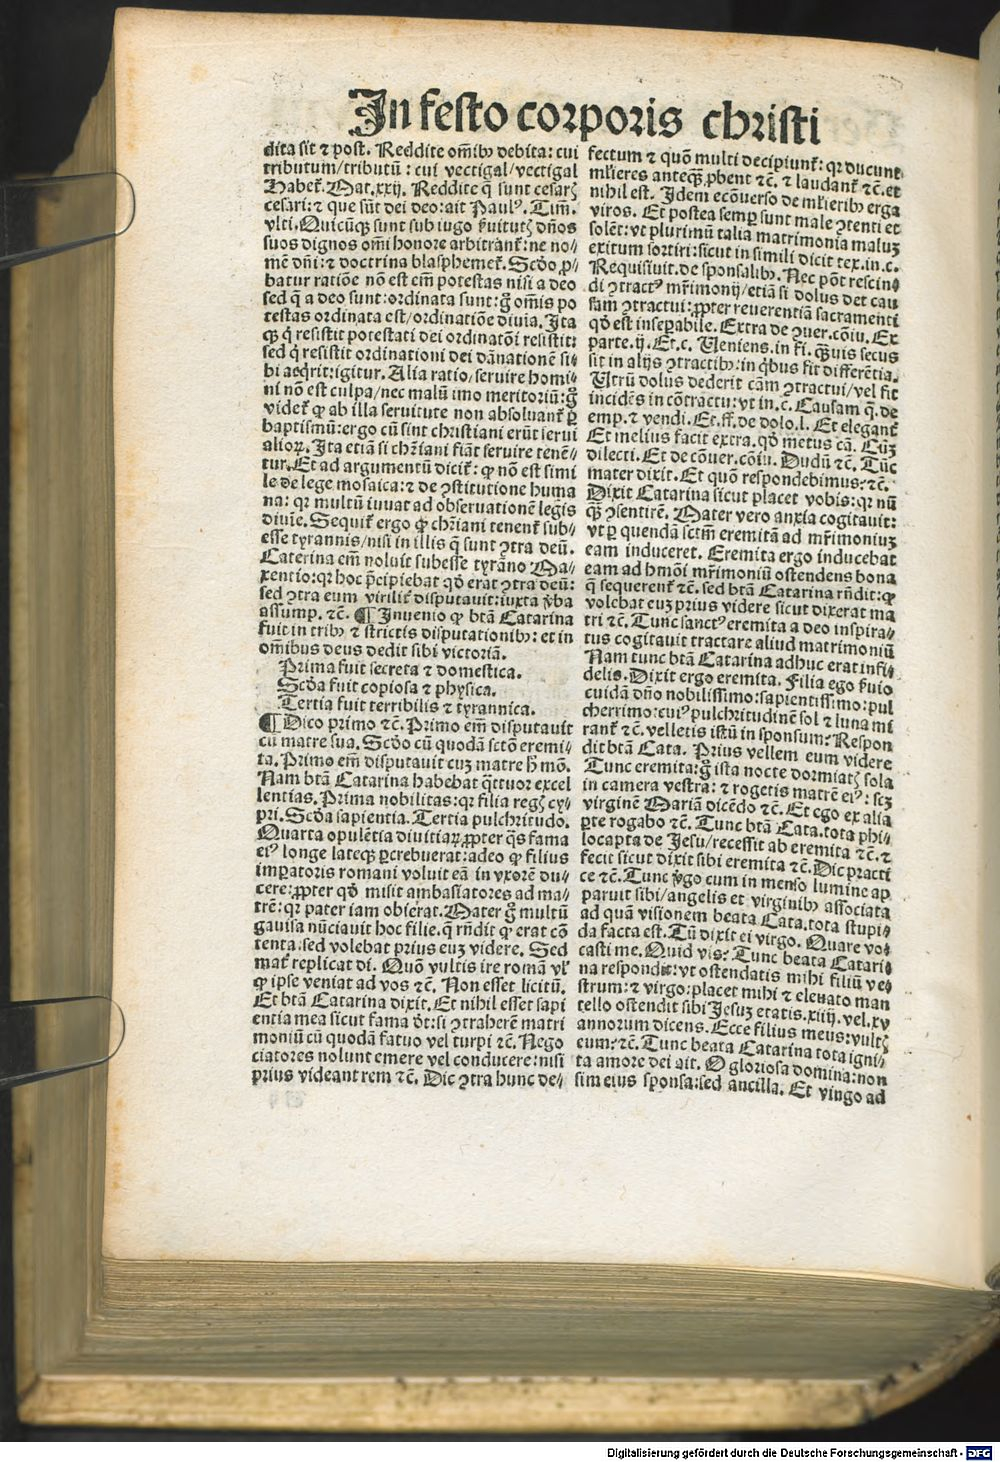 In festo corporis christi
dita sit ⁊ post. Reddite om̄ibꝰ debita: cui
tributum/tributū: cui vectigal/vectigal
Habet̄. Mat.xxij. Reddite q̄ sunt cesarꝭ
cesari: ⁊ que sūt dei deo: ait Paulꝰ. Tim̄.
vlti. Quicūqꝫ sunt sub iugo ẜuitutꝭ dn̄os
suos dignos om̄i honore arbitrant̄: ne no-
mē dn̄i: ⁊ doctrina blasphemet̄. Scd̄o ꝓ-
batur ratiōe nō est em̄ potestas nisi a deo
sed q̄ a deo sunt: ordinata sunt: gͦ om̄is po
testas ordinata est/ordinatiōe diuīa. Ita
ꝙ qͥ resistit potestati dei ordinatōi resistit:
sed qͥ resistit ordinationi dei dānationē si-
bi acqͥrit: igitur. Alia ratio/seruire homi-
ni nō est culpa/nec malū imo meritoriū: gͦ
videt̄ ꝙ ab illa seruitute non absoluant̄ ꝑ
baptismū: ergo cū sint christiani erūt serui
alioꝝ. Ita etiā si chr̄iani fiāt seruire tenē-
tur. Et ad argumentū dicit̄: ꝙ nō est simi
le de lege mosaica: ⁊ de ꝯstitutione huma
na: qꝛ multū iuuat ad obseruationē legis
diuīe. Sequit̄ ergo ꝙ chr̄iani tenent̄ sub-
esse tyrannis/nisi in illis q̄ sunt ꝯtra deū.
Caterina em̄ noluit subesse tyrāno Ma-
xentio: qꝛ hoc p̄cipiebat qd̄ erat ꝯtra deū:
sed ꝯtra eum virilit̄ disputauit: iuxta ꝟba
assump. ⁊c̄. ¶ Inuenio ꝙ btā Catarina
fuit in tribꝰ ⁊ strictis disputationibꝰ: et in
om̄ibus deus dedit sibi victoriā.
Prima fuit secreta ⁊ domestica.
Scd̄a fuit copiosa ⁊ physica.
Tertia fuit terribilis ⁊ tyrannica.
¶ Dico primo ⁊c̄. Primo em̄ disputauit
cū matre sua. Scd̄o cū quodā sctō eremi-
ta. Primo em̄ disputauit cuꝫ matre hͦ mō.
Nam btā Catarina habebat qͣttuor excel
lentias. Prima nobilitas: qꝛ filia regꝭ cy-
pri. Scd̄a sapientia. Tertia pulchritudo.
Quarta opulētia diuitiaꝝ ꝓpter qͣs fama
eiꝰ longe lateqꝫ ꝑcrebuerat: adeo ꝙ filius
imꝑatoris romani voluit eā in vxorē du-
cere: ꝓpter qd̄ misit ambasiatores ad ma-
trē: qꝛ pater iam obierat. Mater gͦ multū
gauisa nūciauit hoc filie. q̄ rn̄dit ꝙ erat cō
tenta: sed volebat prius euꝫ videre. Sed
mat̄ replicat di. Quō vultis ire romā vl̄
ꝙ ipse veniat ad vos ⁊c̄. Non esset licitū.
Et btā Catarina dixit. Et nihil esset sapi
entia mea sicut fama d̄t: si ꝯtraherē matri
moniū cū quodā fatuo vel turpi ⁊c̄. Nego
ciatores nolunt emere vel conducere: nisi
prius videant rem ⁊c̄. Dic ꝯtra hunc de-
fectum ⁊ quō multi decipiunt̄: qꝛ ducunt
mlieres anteqꝫ ꝓbent ⁊c̄. ⁊ laudant̄ ⁊c̄. et
nihil est. Idem ecōuerso de mlieribꝰ erga
viros. Et postea semꝑ sunt male ꝯtenti et
solēt: vt plurimū talia matrimonia maluꝫ
exitum sortiri: sicut in simili dicit tex. in. c.
Requisiuit. de sponsalibꝰ. Nec pōt rescin-
di ꝯtractꝰ mr̄imonij/etiā si dolus det cau
sam ꝯtractui: ꝓpter reuerentiā sacramenti
qd̄ est inseꝑabile. Extra de ꝯuer. cōiu. Ex
parte. ij. Et. c. Veniens. in fi. qͣuis secus
sit in alijs ꝯtractibꝰ: in qͥbus fit differētia.
Vtrū dolus dederit cām ꝯtractui/vel fit
incidēs in cōtractu: vt in. c. Causam q̄. de
emp. ⁊ vendi. Et. ff. de dolo. l. Et elegant̄
Et melius facit extra. qd̄ metus cā. Cuꝫ
dilecti. Et de cōuer. cōiu. Dudū ⁊c̄. Tūc
mater dixit. Et quō respondebimus: ⁊c̄.
Dixit Catarina sicut placet vobis: qꝛ nū
qͣꝫ ꝯsentirē. Mater vero anxia cogitauit:
vt ꝑ quendā sctm̄ eremitā ad mr̄imoniuꝫ
eam induceret. Eremita ergo inducebat
eam ad hmōi mr̄imoniū ostendens bona
q̄ sequerent̄ ⁊c̄. sed btā Catarina rn̄dit: ꝙ
volebat euꝫ prius videre sicut dixerat ma
tri ⁊c̄. Tunc sanctꝰ eremita a deo inspira-
tus cogitauit tractare aliud matrimoniū
Nam tunc btā Catarina adhuc erat infi-
delis. Dixit ergo eremita. Filia ego ẜuio
cuidā dn̄o nobilissimo: sapientissimo: pul
cherrimo: cuiꝰ pulchritudinē sol ⁊ luna mi
rant̄ ⁊c̄. velletis istū in sponsum: Respon
dit btā Cata. Prius vellem eum videre
Tunc eremita: gͦ ista nocte dormiatꝭ sola
in camera vestra: ⁊ rogetis matrē eiꝰ: scꝫ
virginē Mariā dicēdo ⁊c̄. Et ego ex alia
ꝑte rogabo ⁊c̄. Tunc btā Cata. tota phi-
locapta de Jesu/recessit ab eremita ⁊c̄. ⁊
fecit sicut dixit sibi eremita ⁊c̄. Dic practi
ce ⁊c̄. Tunc ꝟgo cum in menso lumine ap
paruit sibi/angelis et virginibꝰ associata
ad quā visionem beata Cata. tota stupi-
da facta est. Tū dixit ei virgo. Quare vo-
casti me. Quid vis: Tunc beata Catari-
na respondit: vt ostendatis mihi filiū ve-
strum: ⁊ virgo: placet mihi ⁊ eleuato man
tello ostendit sibi Jesuꝫ etatis. xiiij. vel. xv
annorum dicens. Ecce filius meus: vultꝭ
eum: ⁊c̄. Tunc beata Catarina tota igni-
ta amore dei ait. O gloriosa domina: non
sim eius sponsa: sed ancilla. Et virgo ad
Digitalisierung gefördert durch die Deutsche Forschungsgemeinschaft - DFG